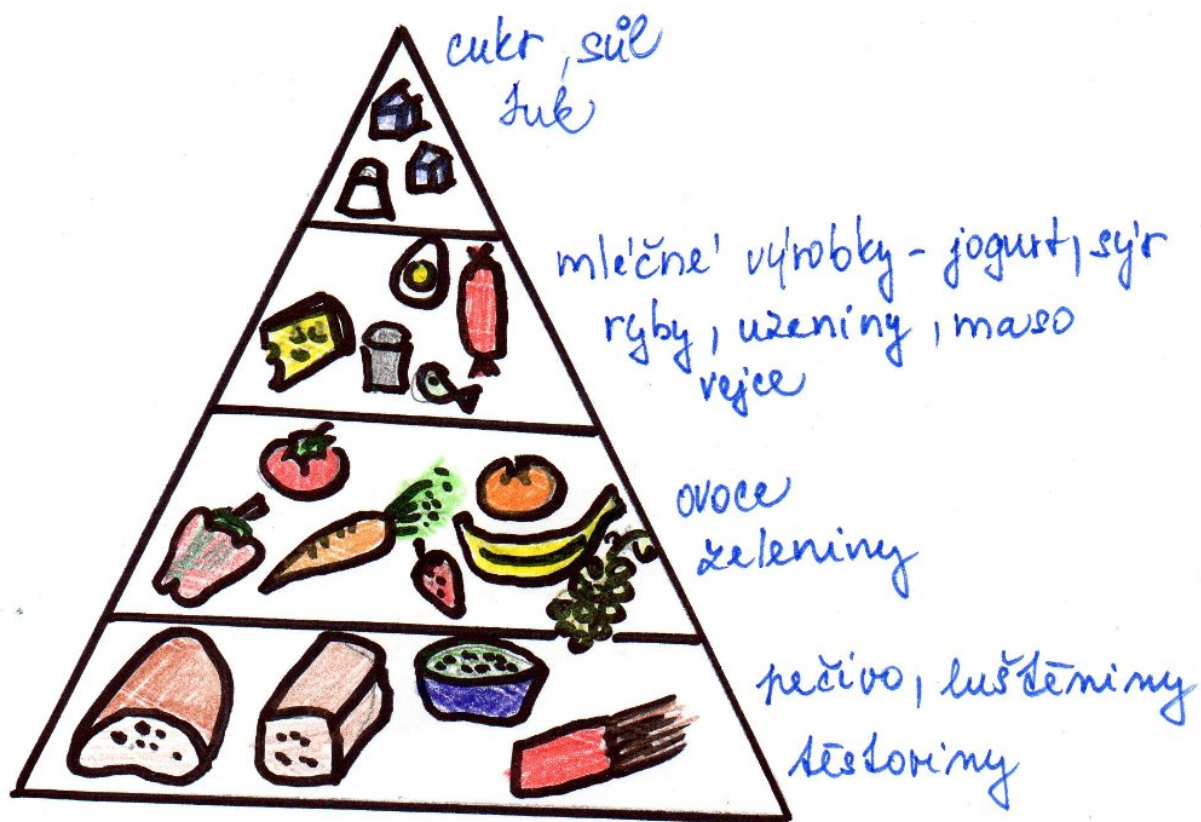 cukr, sůl
tuk
mléčné výrobky - jogurt, sýr
ryby, uzeniny, maso
vejce
ovoce
zeleniny
pečivo, luštěniny
těstoviny